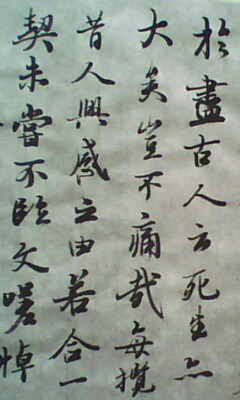 於盡古人云死生亦
大矣豈不痛哉每攬
昔人興感之由若合一
契未嘗不臨文嗟悼